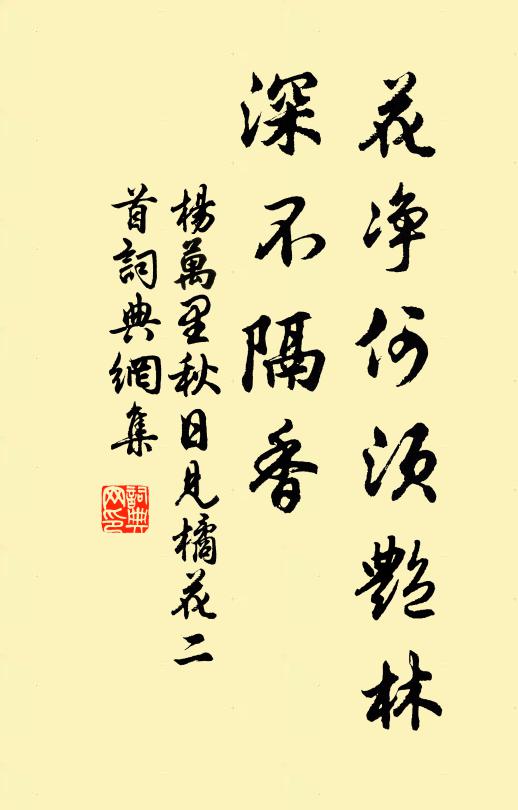 花净何须艷林
深不隔香
楊萬里秋日見橘花二
首詞典網集
詞典
网印